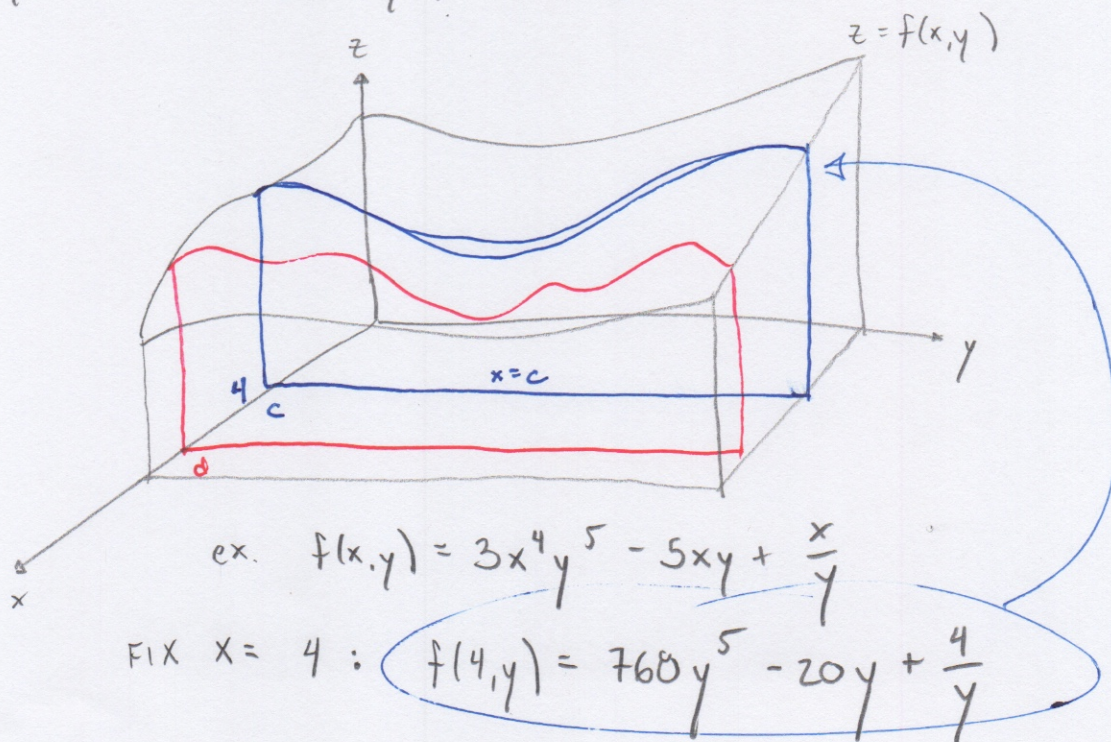 z
z = f(x,y)
x = c
y
4
c
d
x
ex. f(x,y) = 3x⁴y⁵ - 5xy + x/y
FIX x = 4 : f(4,y) = 768y⁵ - 20y + 4/y